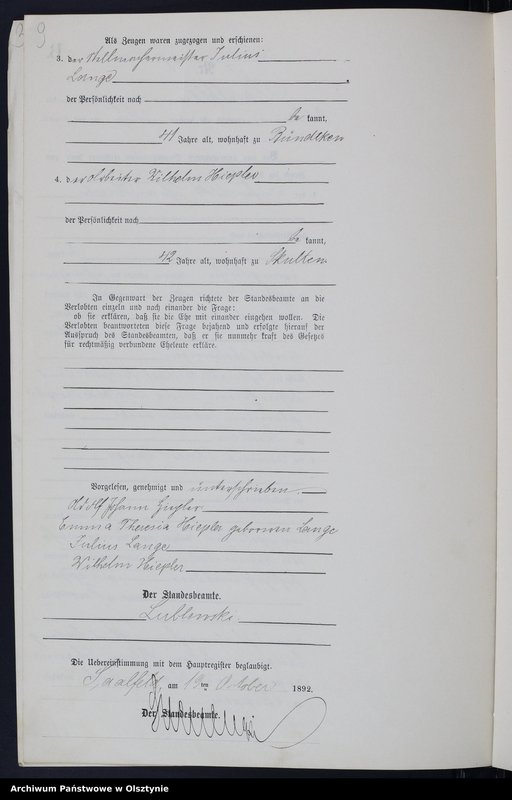 9
Als Zeugen waren zugezogen und erschienen:
3. der Stellmachermeister Julius
Lange
der Persönlichkeit nach
be kannt,
41 Jahre alt, wohnhaft zu Bündtken
4. der Arbeiter Wilhelm Hiepler
der Persönlichkeit nach
be kannt,
42 Jahre alt, wohnhaft zu Skulten
In Gegenwart der Zeugen richtete der Standesbeamte an die
Verlobten einzeln und nach einander die Frage:
ob sie erklären, daß sie die Ehe mit einander eingehen wollen. Die
Verlobten beantworteten diese Frage bejahend und erfolgte hierauf der
Ausspruch des Standesbeamten, daß er sie nunmehr kraft des Gesetzes
für rechtmäßig verbundene Eheleute erkläre.
Vorgelesen, genehmigt und unterschrieben.
Adolf Johann Hiepler
Emma Theresia Hiepler geborenen Lange
Julius Lange
Wilhelm Hiepler
Der Standesbeamte.
Lublewski.
Die Uebereinstimmung mit dem Hauptregister beglaubigt.
Saalfeld, am 19 ten October 1892.
Der Standesbeamte.
Archiwum Państwowe w Olsztynie